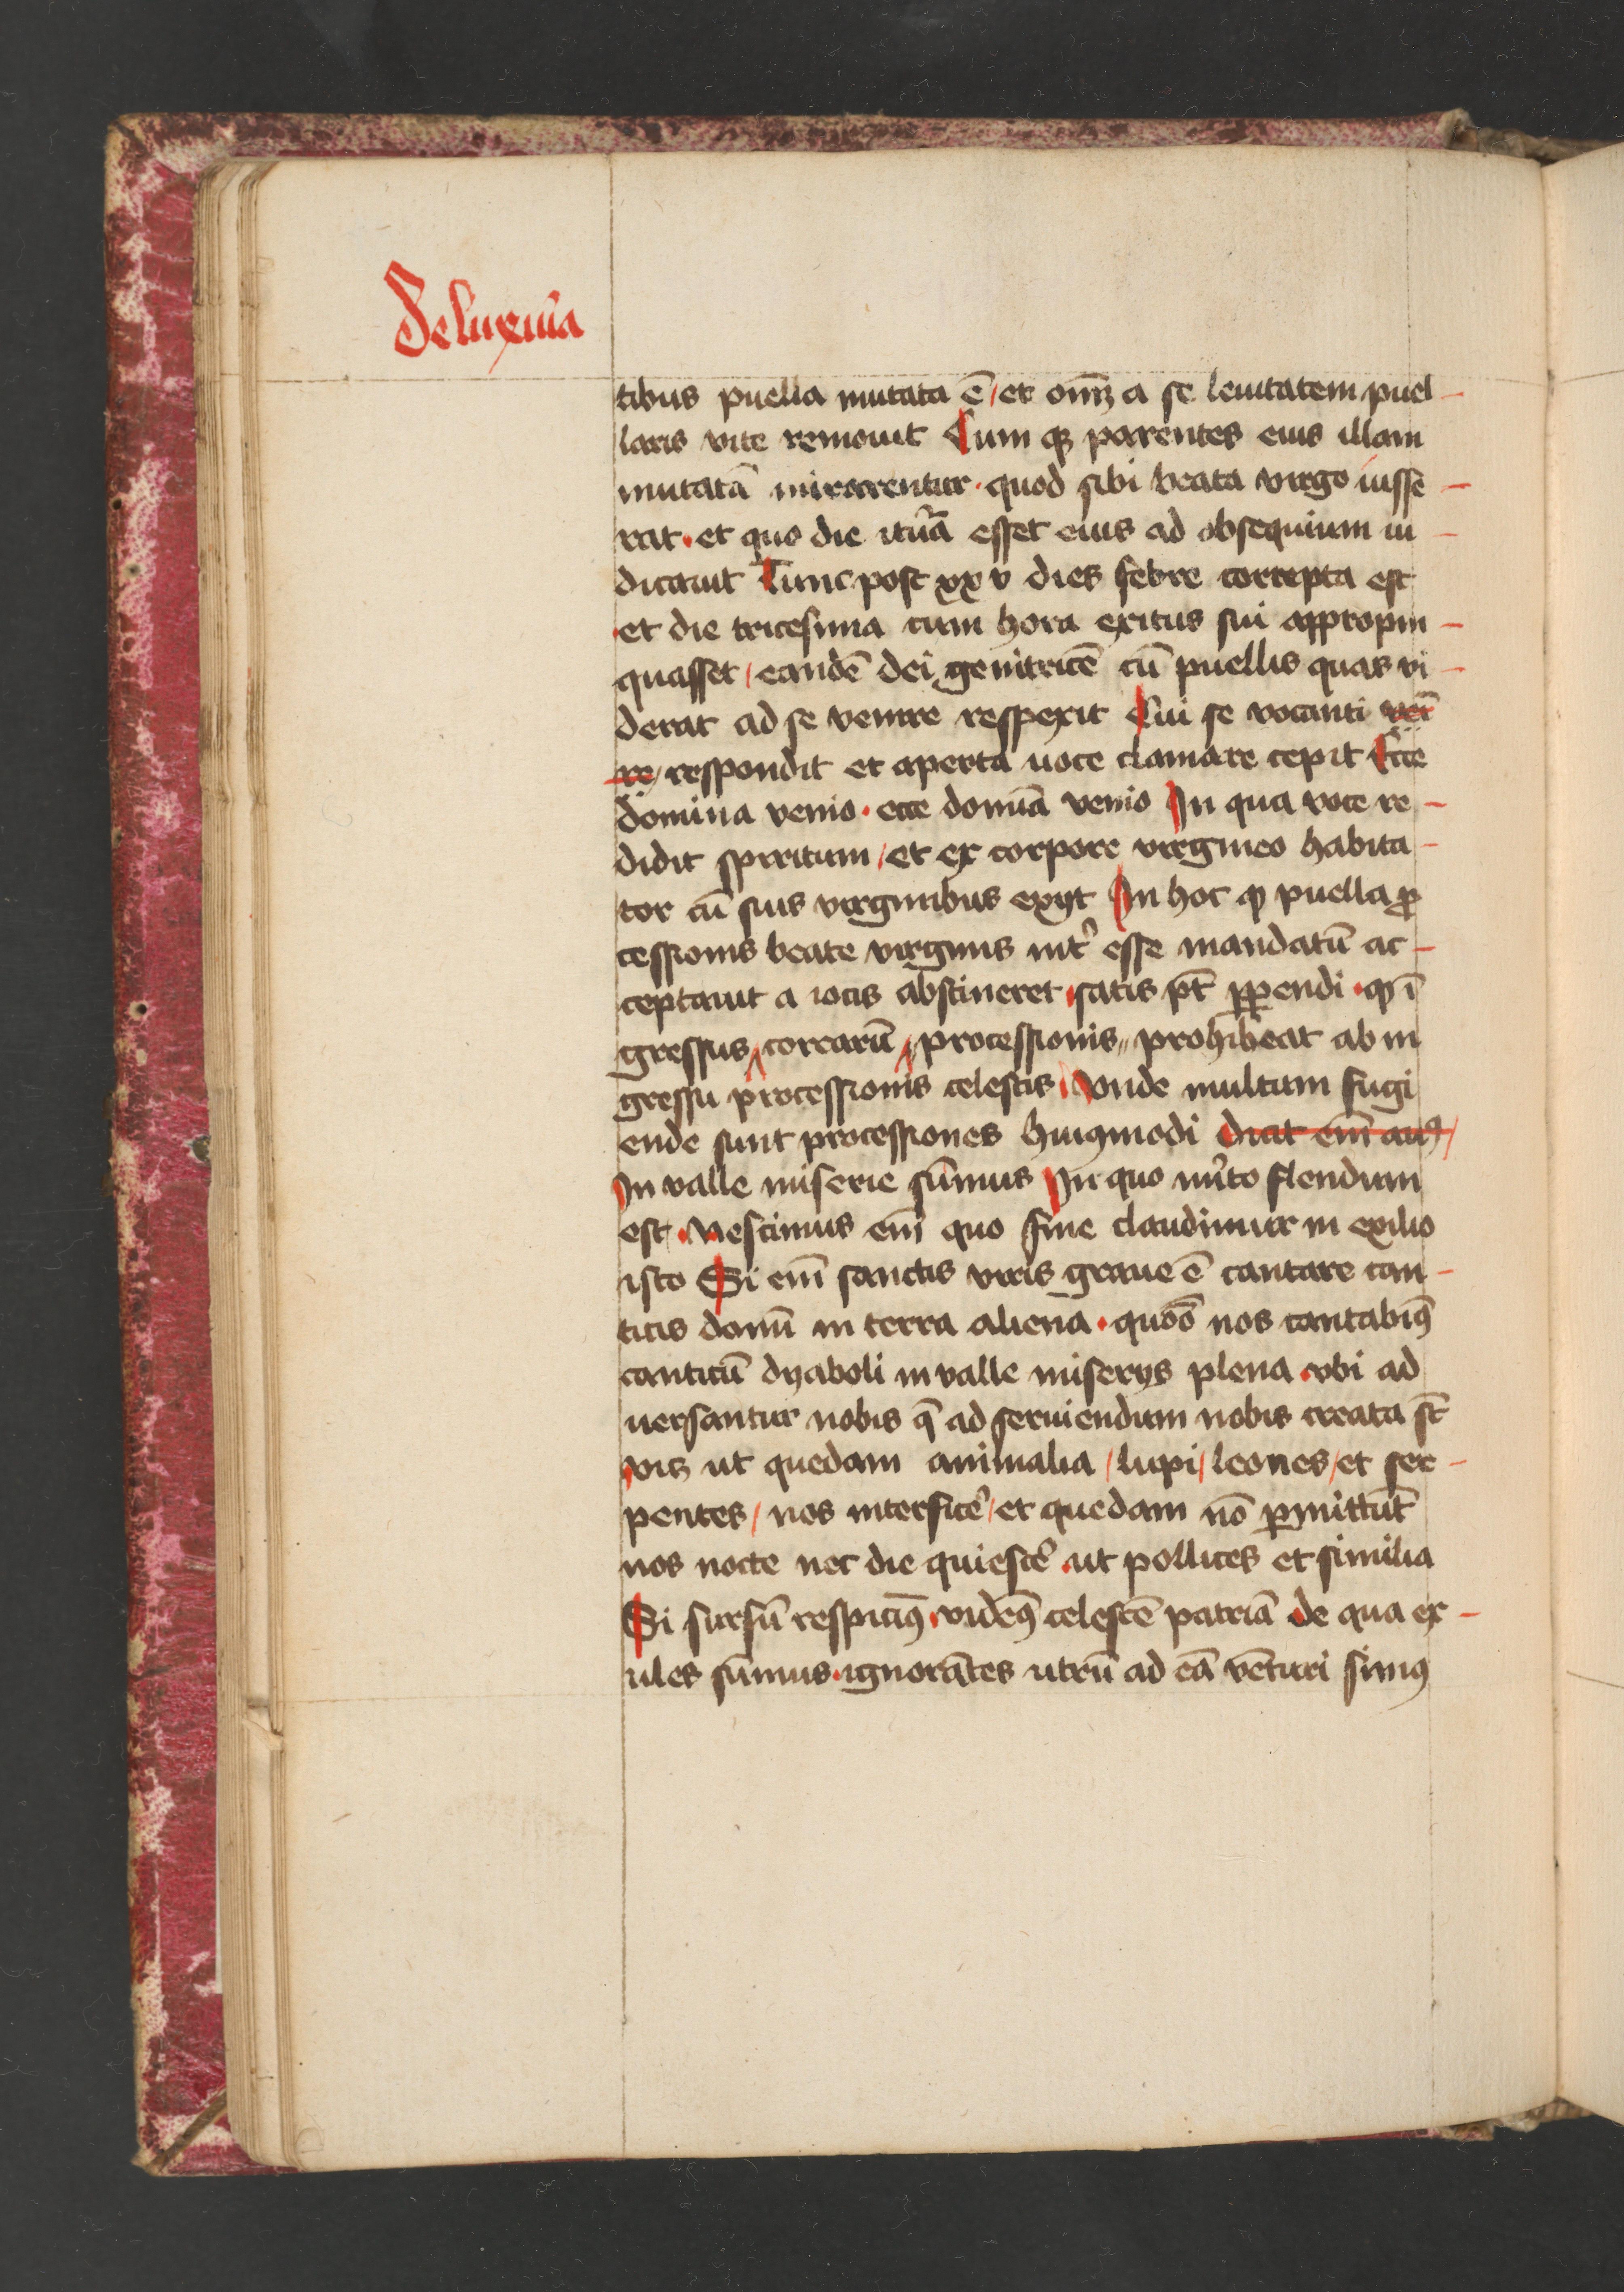 De luxuria
tibus puella mutata ē / et om̄ꝫ a se leuitatem puel-
laris vite remouit Cum qꝫ parentes eius illam
mutatā mirarentur · quod sibi beata virgo iusse-
rat · et quo die itura̅ esset eius ad obsequium in-
dicauit Tunc post xxv dies febre correpta est
· et die tricesima cum hora exitus sui appropin-
quasset / eandē dei genitricē cū puellis quas vi-
derat ad se venire respexit Cui se vocanti
re / respondit et aperta uoce clamare cepit Ecce
domina venio · ecce domīa venio In qua voce re-
didit spiritum / et ex corpore virgineo habita-
tor cū suis virginibus exijt In hoc ꝙ puella ꝓ
cessionis beate virginis int͛ esse mandatū ac-
ceptauit a iocis abstineret · satis pt̄ ꝑpendi · ꝙ ī
gressus corearū processionis prohibeat ab in
gressu processionis celestis Vnde multum fugi
ende sunt processiones huiꝯmodi dicit em̄
In valle miserie sumus In quo m͛to flendum
est · Nescimus em̄ quo fine claudimur in exilio
isto Si em̄ sanctis viris graue ē cantare can-
ticis domī in terra aliena · quōō nos cantabiꝯ
canticū dyaboli in valle miserijs plena · vbi ad
uersantur nobis q̄ ad seruiendum nobis creata st̄
viꝫ ut quedam animalia / lupi / leones / et ser-
pentes / nos interfice͛ / et quedam nō ꝑmittūt
nos nocte nec die quiesce͛ · ut pollices et similia
Si sursū respiciꝯ · videꝯ celestē patriā de qua ex-
ules sumus · ignorātes utrū ad eā venturi simꝯ